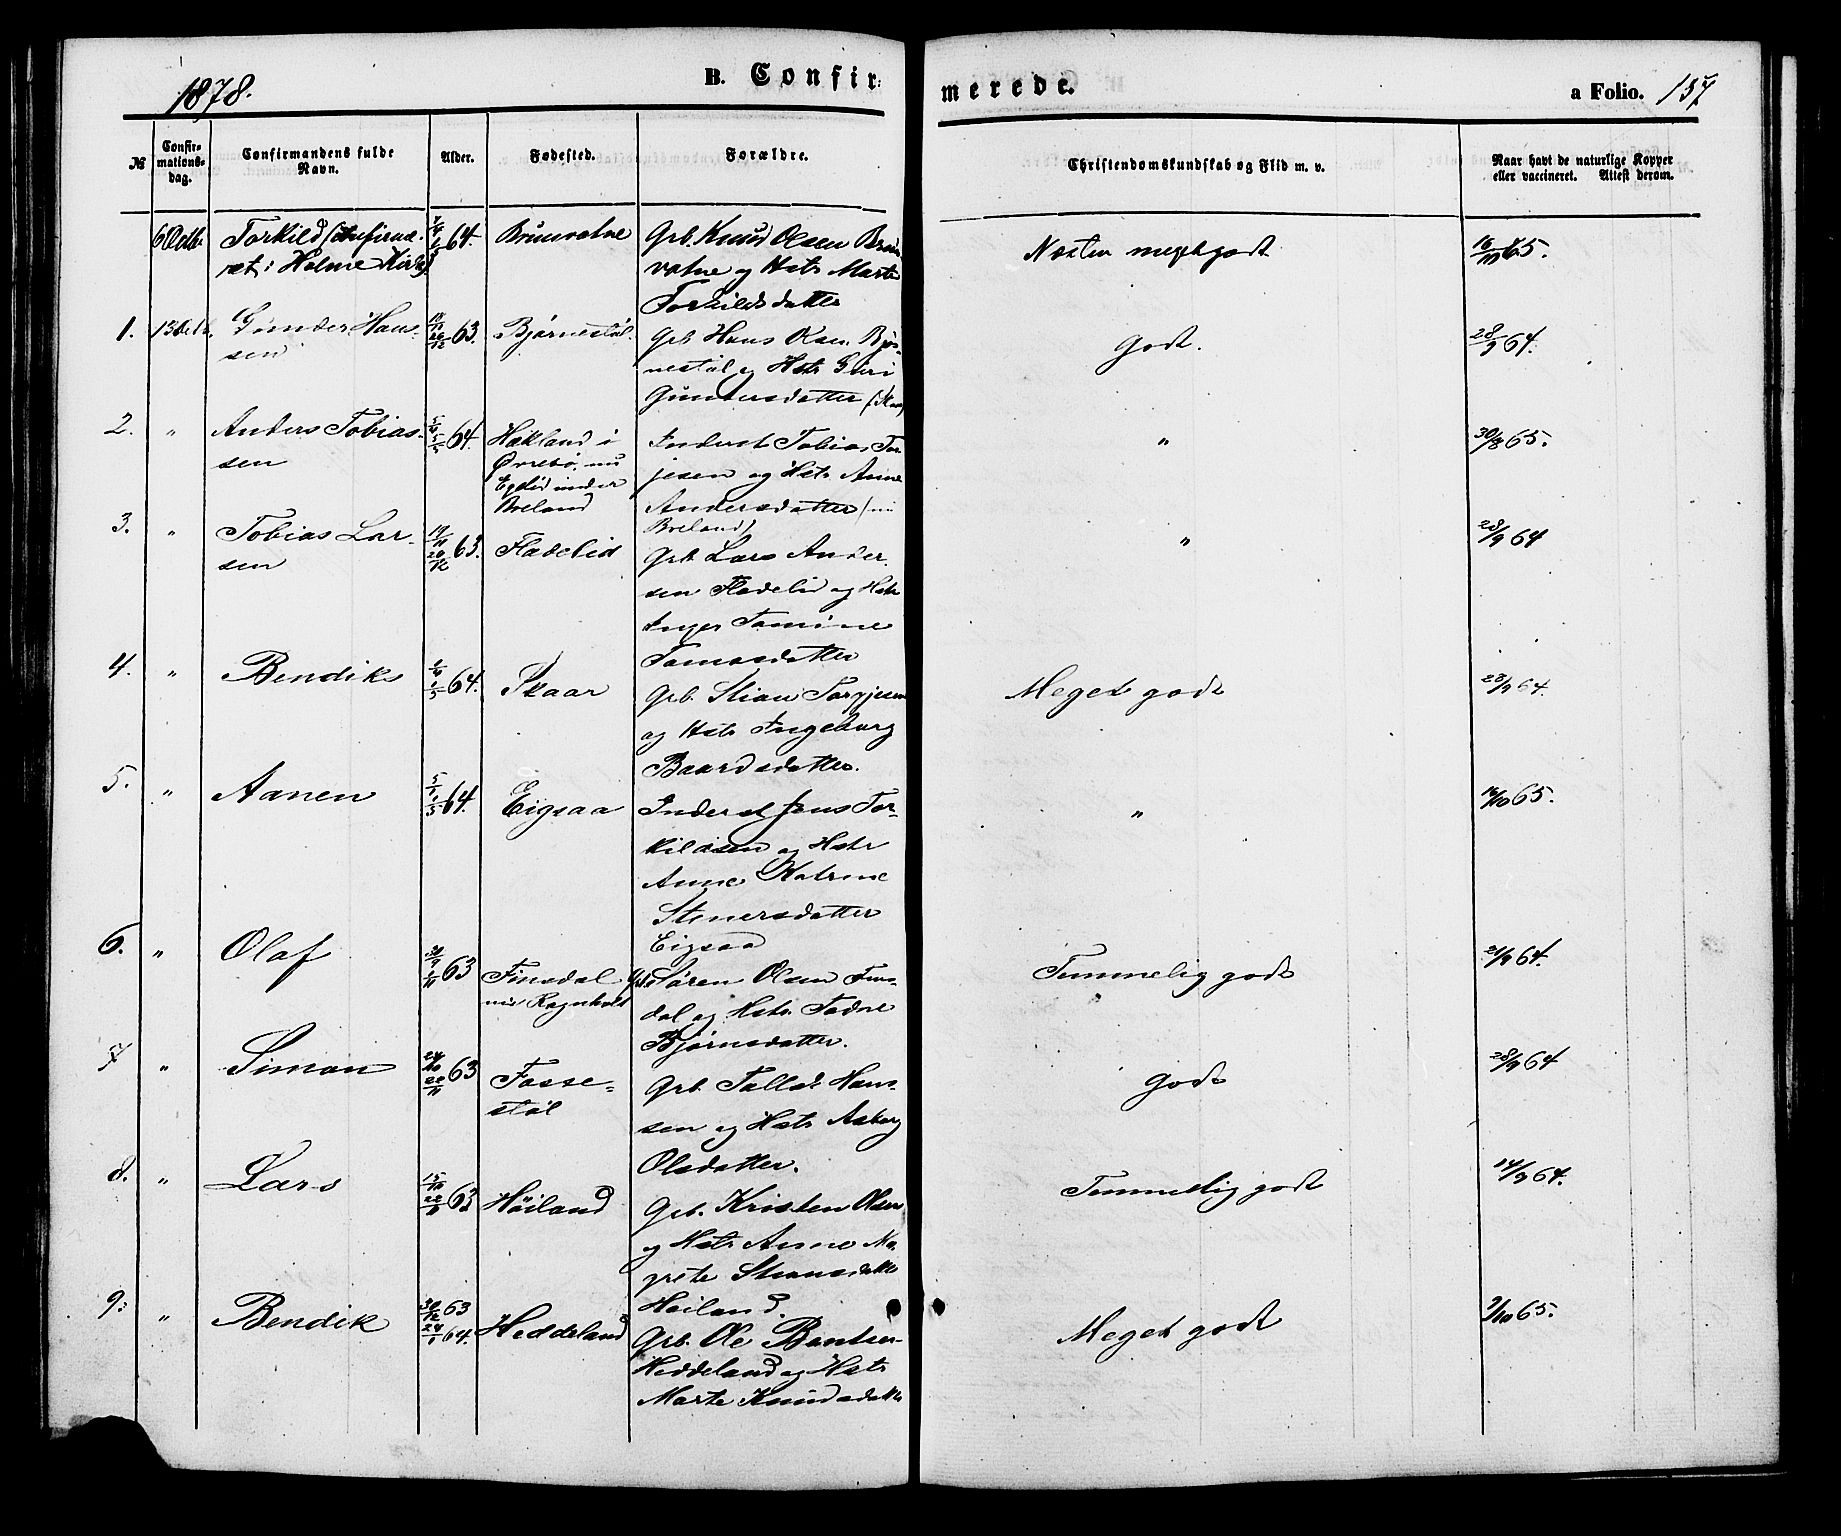 1878.
B. Confir-
merede.
a Folio. 157
№
Confir-
mations-
dag.
Confirmandens fulde
Navn.
Alder.
Fødested.
Forældre.
Christendomskundskab og Flid m. v.
Naar havt de naturlige Kopper
eller vaccineret. Attest derom.
6 Octb.
Torkild (confirme-
ret i Holme Kirke)
64.
Brunvatne
Grb. Knud Olsen Brun-
vatne og Hstr Marte
Torkildsdatter
Næsten meget godt
16/10 65.
1.
13 Octb.
Gunder Han-
sen
63.
Bjørnestøl.
Grb Hans Olsen Bjør-
nestøl og Hstr Guri
Gundersdatter
Godt.
28/9 64.
2.
"
Anders Tobias-
sen
64.
Hækland i
Øvrebø, nu
Eglid under
Breland
Inderst Tobias Tor-
jesen og Hstr Anne
Andersdatter (nu
Breland)
"
30/8 65.
3.
"
Tobias Lar-
sen
19/11 20/12 63.
Fladelid
Grb. Lars Ander-
sen Fladelid og Hstr
Inger Tomine
Tomasdatter
"
28/9 64
4.
"
Bendik
64.
Skaar
Grb. Stian Torgjesen
og Hstr Ingeborg
Baardsdatter.
Meget godt
28/9 64.
5.
"
Aanen
64.
Eigsaa
Inderst Jens Tor-
kildsen og Hstr
Anne Katrine
Stenersdatter
Eigsaa
"
16/10 65.
6.
"
Olaf
63
Finsdal
nu Ragnhold
Grb Søren Olsen Fins-
dal og Hstr. Tadne
Bjørnsdatter.
Temmelig godt
21/9 64.
7
"
Simon
24/10 22/11 63
Fosse-
støl
Grb. Tallak Han-
sen og Hstr Asberg
Olsdatter.
Godt
28/9 64
8.
"
Lars
15/10 22/11 63
Høiland
Grb. Kristen Olsen
og Hstr Anne Ma-
grete Stiansdatter
Høiland.
Temmelig godt
14/9 64.
9.
"
Bendik
30/12 63
24/1 64.
Heddeland
Grb. Ole Bentsen
Heddeland og Hstr
Marte Knudsdatter
Meget godt
9/10 65.